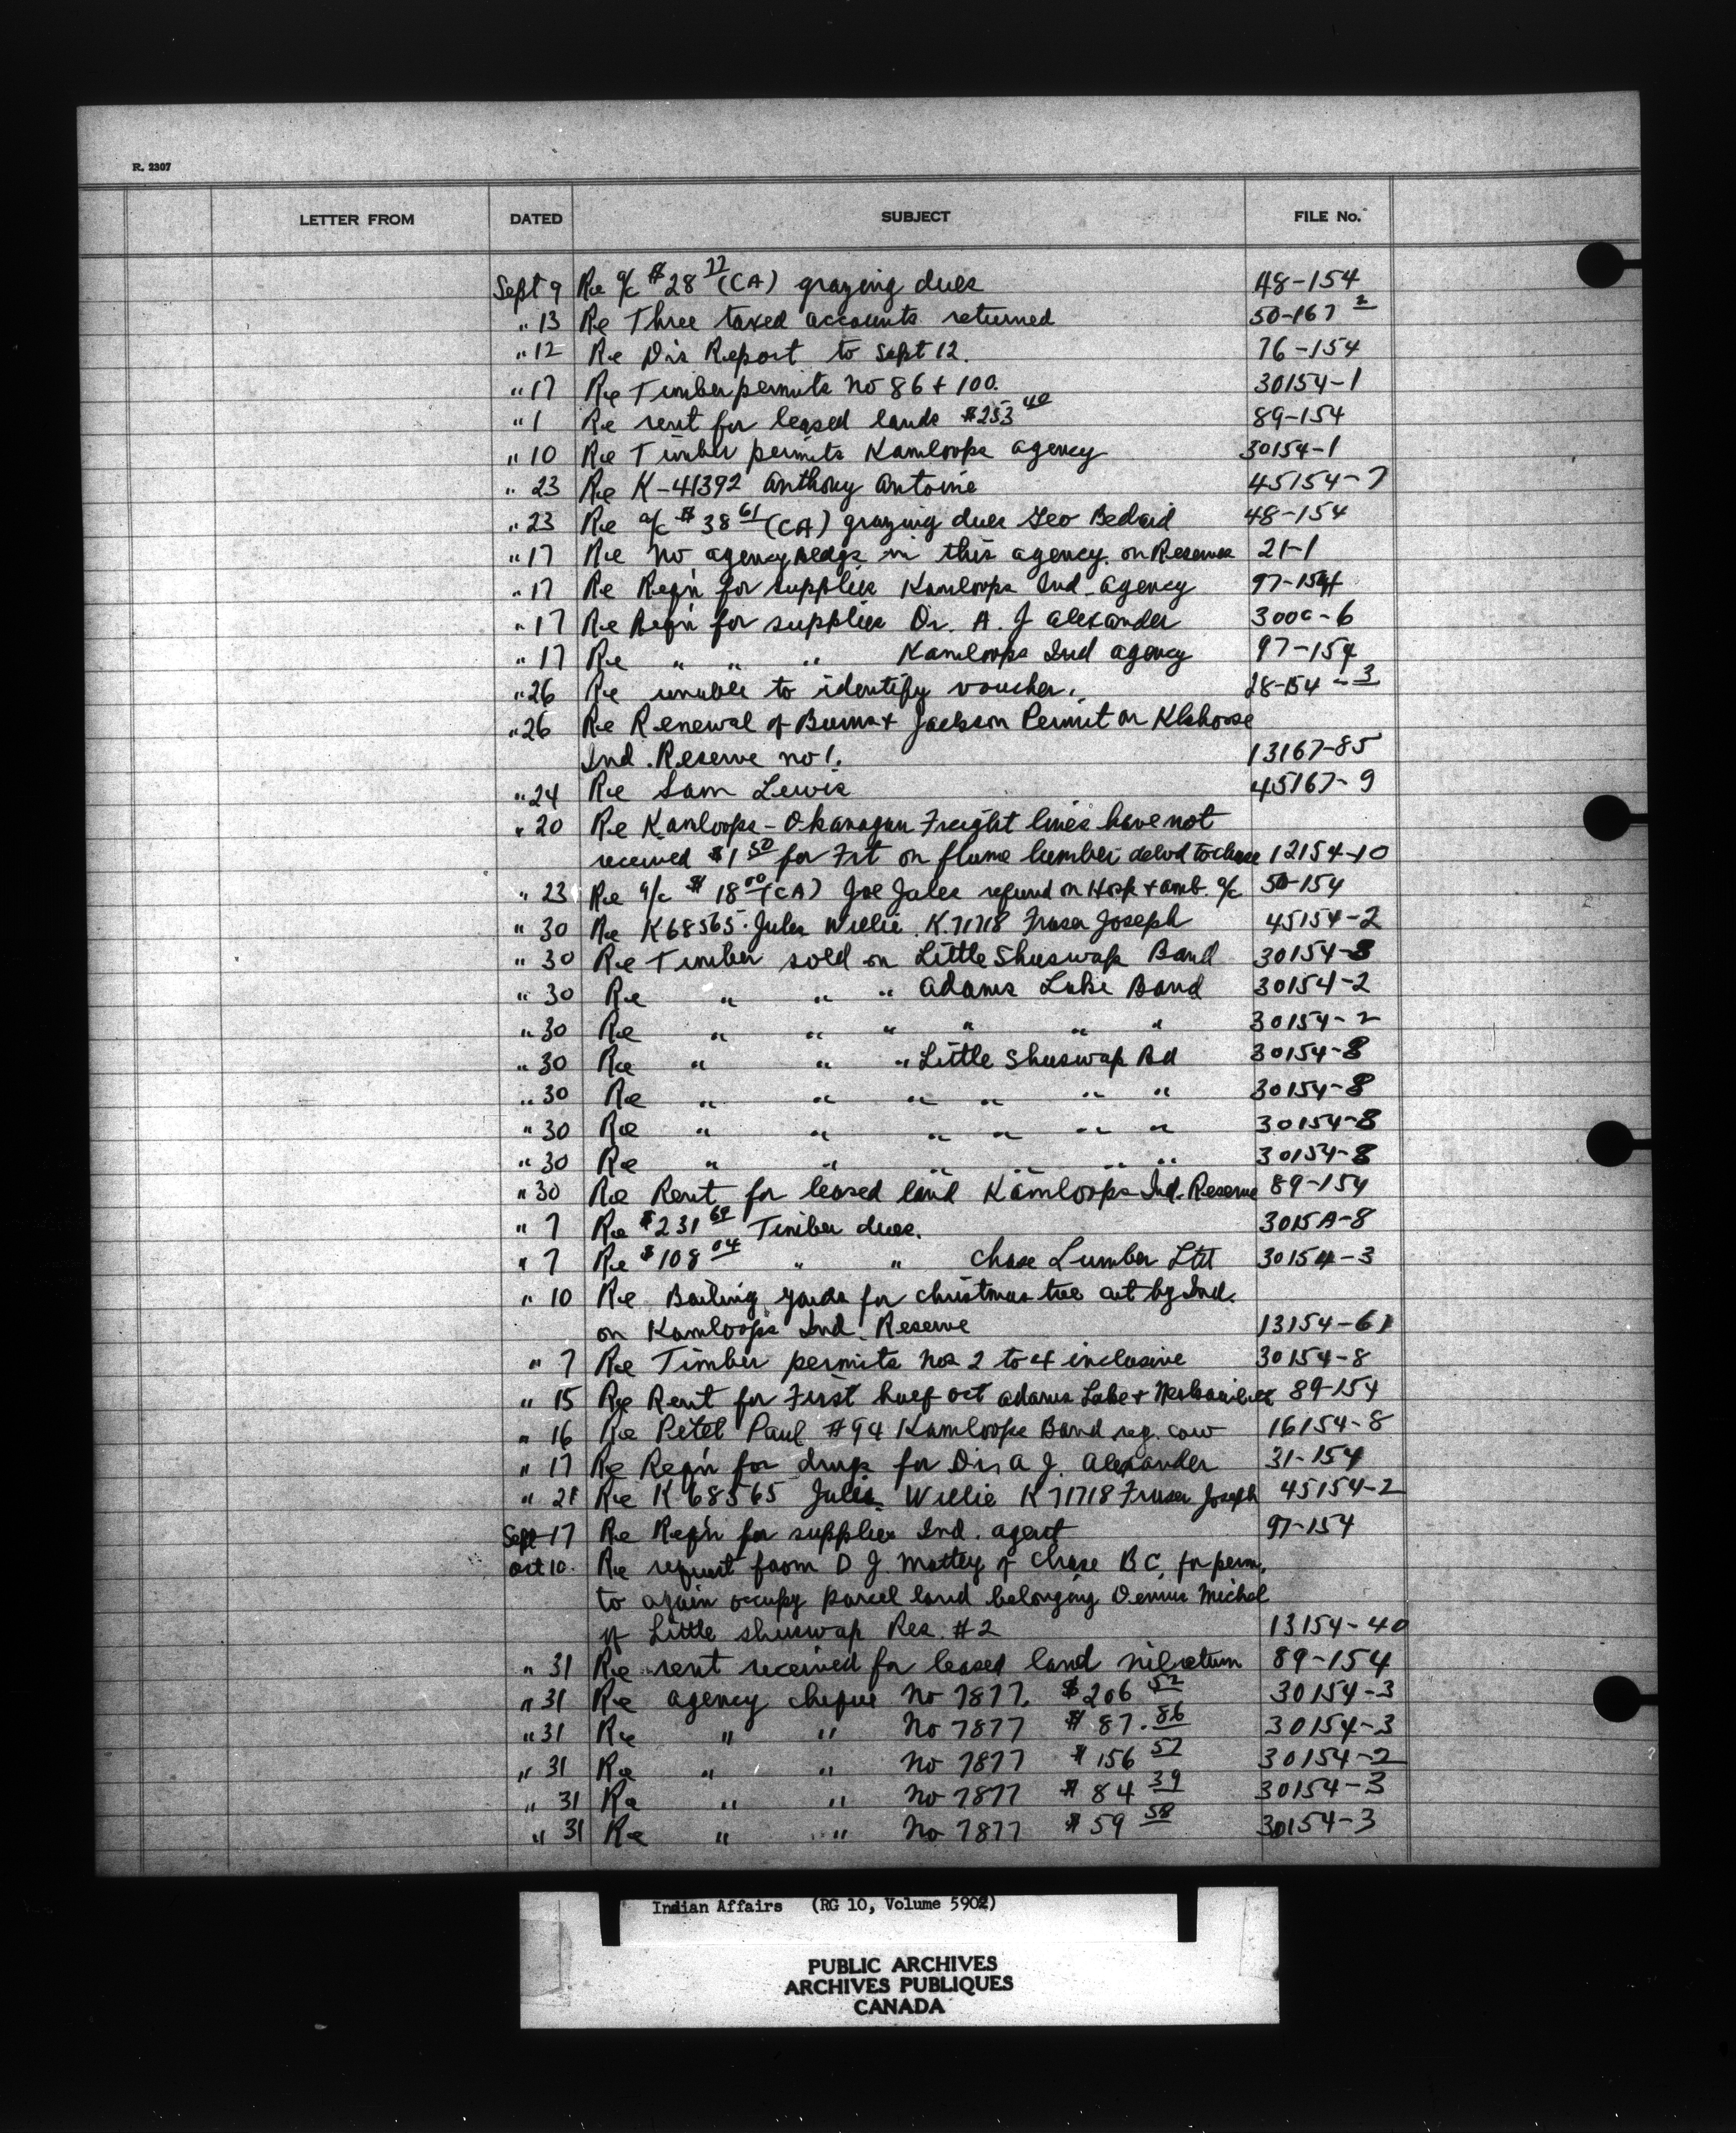 R. 2307
LETTER FROM DATED SUBJECT FILE No.
Sept 9 Re a/c $28 77 (CA) grazing dues 48-154
" 13 Re Three taxed accounts returned 50-167 2
" 12 Re Dis Report to Sept 12. 76-154
" 17 Re Timber permits No 86 + 100. 30154-1
" 1 Re rent for leased lands $253 40 89-154
" 10 Re Timber permits Kamloops agency 30154-1
" 23 Re K-41392 Anthony Antoine 45154-7
" 23 Re a/c $38 61 (CA) grazing dues Geo Bedard 48-154
" 17 Re No agency bldgs in this agency on Reserves 21-1
" 17 Re Reqn for supplies Kamloops Ind. Agency 97-154
" 17 Re Reqn for supplies Dr. A. J Alexander 300a-6
" 17 Re " " " Kamloops Ind agency 97-154
" 26 Re unable to identify voucher. 28-154-3
" 26 Re Renewal of Burns + Jackson Permit on Klahoose
Ind. Reserve no 1. 13167-85
" 24 Re Sam Lewis 45167-9
" 20 Re Kamloops-Okanagan Freight lines have not
received $1 50 for Frt on flume lumber delvd to Chase 12154-10
" 23 Re a/c $18 00 (CA) Joe Jules refund on Hosp + amb. a/c 50-154
" 30 Re K68565 Jules Willie K.71718 Fraser Joseph 45154-2
" 30 Re Timber sold on Little Shuswap Band 30154-8
" 30 Re " " " Adams Lake Band 30154-2
" 30 Re " " " " " " 30154-2
" 30 Re " " " Little Shuswap Bd 30154-8
" 30 Re " " " " " " 30154-8
" 30 Re " " " " " " 30154-8
" 30 Re " " " " " " 30154-8
" 30 Re Rent for leased land Kamloops Ind. Reserve 89-154
" 7 Re $231 69 Timber dues. 3015A-8
" 7 Re $108 04 " " Chase Lumber Ltd 30154-3
" 10 Re Bailing yards for christmas tree cut by Ind.
on Kamloops Ind. Reserve 13154-61
" 7 Re Timber permits nos 2 to 4 inclusive 30154-8
" 15 Re Rent for First half Oct Adams Lake + Neskainlith 89-154
" 16 Re Petel Paul #94 Kamloops Band reg. cow 16154-8
" 17 Re Reqn for drugs for Dr. A J. Alexander 31-154
" 21 Re K 68565 Jules Willie K 71718 Fraser Joseph 45154-2
Sept 17 Re Reqn for supplies Ind. agent 97-154
Oct 10. Re request from D J. Mattey of Chase B C, for perm.
to again occupy parcel land belonging Dennis Michel
of Little Shuswap Res. #2 13154-40
" 31 Re rent received for leased land nil return 89-154
" 31 Re agency cheque No 7877. $206 52 30154-3
" 31 Re " " No 7877 $87.86 30154-3
" 31 Re " " No 7877 $156 57 30154-2
" 31 Re " " No 7877 $84 39 30154-3
" 31 Re " " No 7877 $59 58 30154-3
Indian Affairs (RG 10, Volume 5902)
PUBLIC ARCHIVES
ARCHIVES PUBLIQUES
CANADA